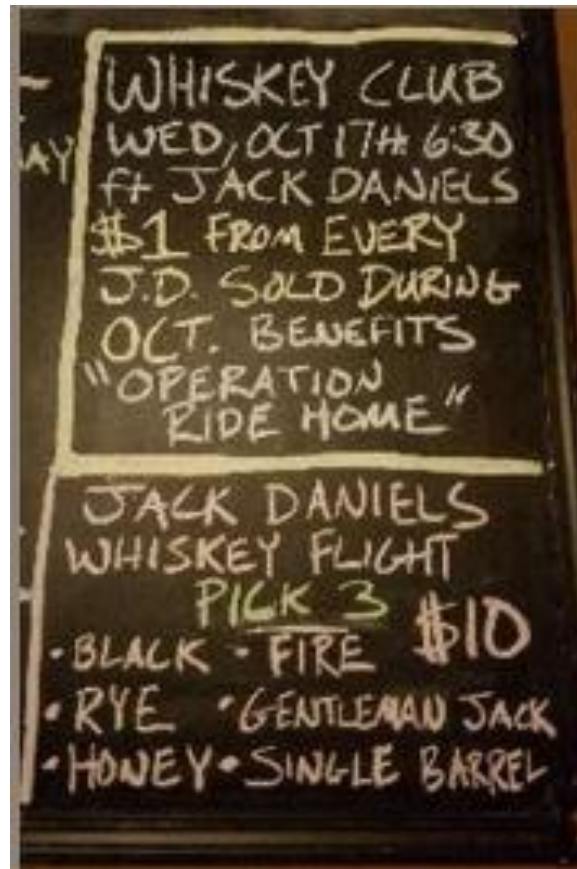 AY
WHISKEY CLUB
WED, OCT 17TH 6:30
ft JACK DANIELS
$1 FROM EVERY
J.D. SOLD DURING
OCT. BENEFITS
"OPERATION
RIDE HOME"
JACK DANIELS
WHISKEY FLIGHT
PICK 3 $10
• BLACK - FIRE
• RYE • GENTLEMAN JACK
• HONEY • SINGLE BARREL